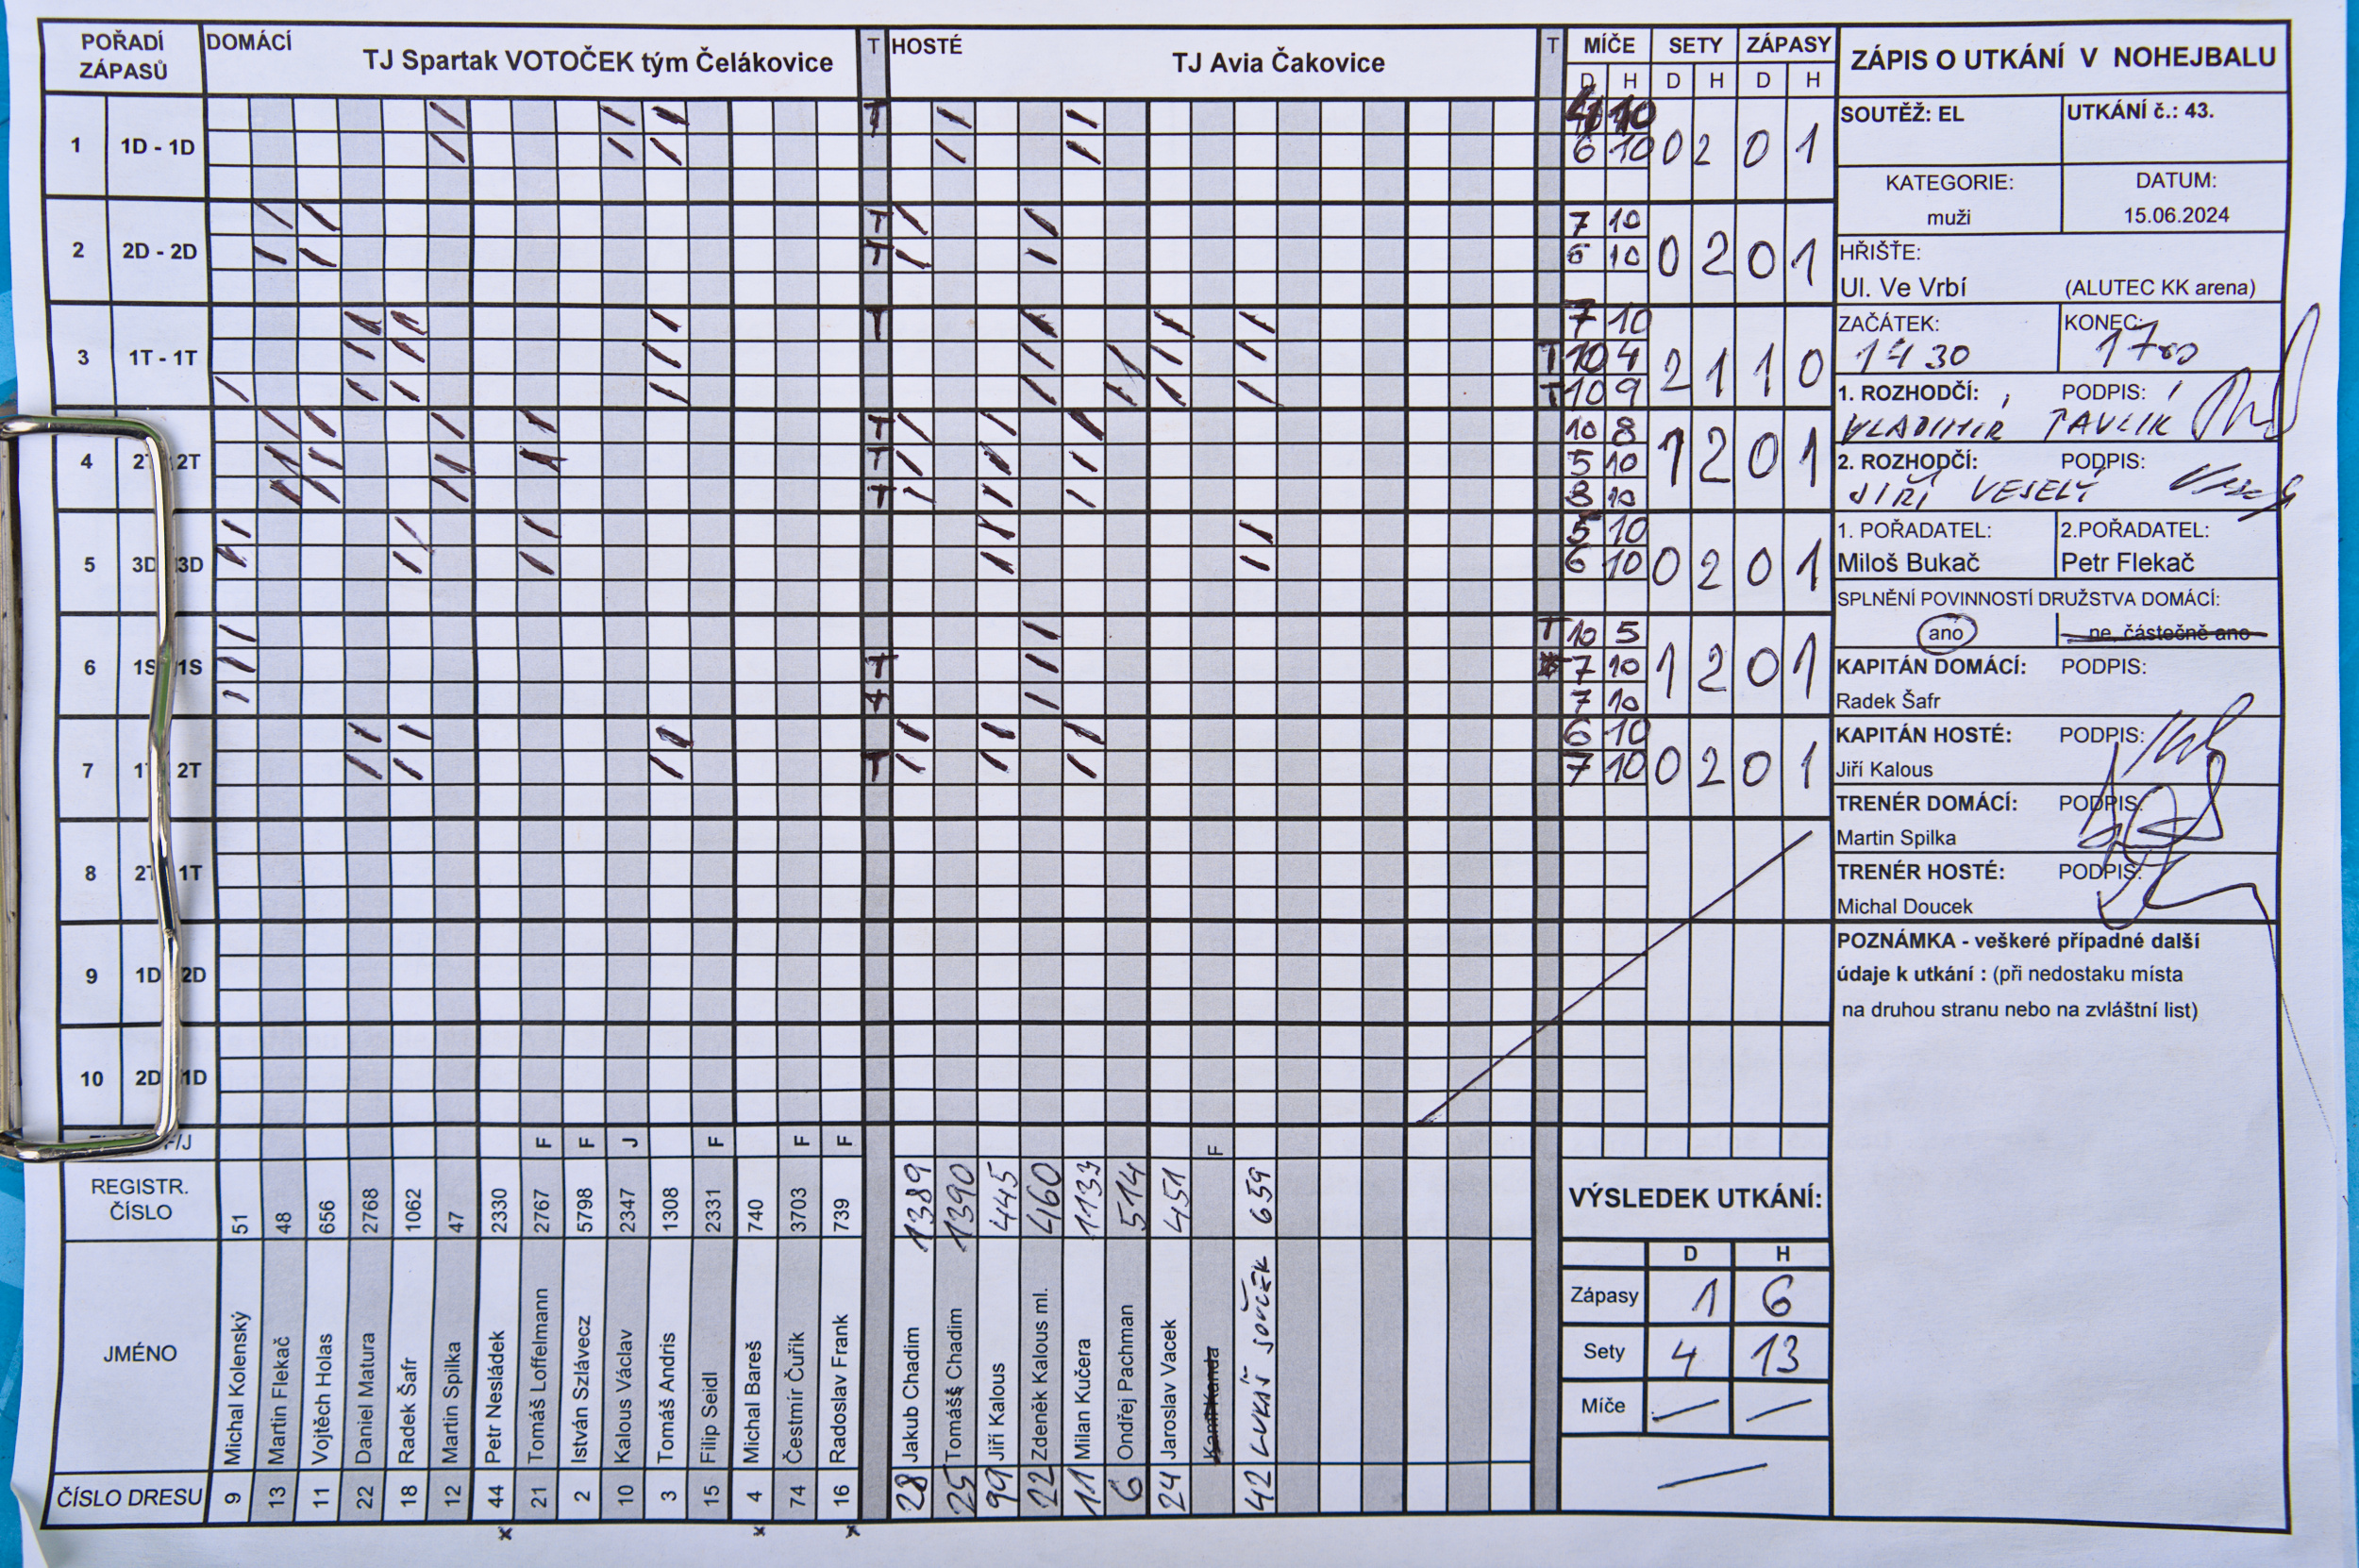 POŘADÍ ZÁPASŮ DOMÁCÍ TJ Spartak VOTOČEK tým Čelákovice T HOSTÉ TJ Avia Čakovice T MÍČE SETY ZÁPASY
D H D H D H
1 1D - 1D T 10
6 10 0 2 0 1
2 2D - 2D T 7 10
T 6 10 0 2 0 1
3 1T - 1T T 7 10
T 10 4 2 1 1 0
T 10 9
4 2T 2T T 10 8
T 5 10 1 2 0 1
T 8 10
5 3D 3D 5 10
6 10 0 2 0 1
6 1S 1S T 10 5
T 7 10 1 2 0 1
T 7 10
7 1T 2T 6 10
T 7 10 0 2 0 1
8 2T 1T
9 1D 2D
10 2D 1D
F/J F F J F F F F
REGISTR. ČÍSLO 51 48 656 2768 1062 47 2330 2767 5798 2347 1308 2331 740 3703 739 1389 1390 445 460 1133 514 451 659
JMÉNO
Michal Kolenský
Martin Flekač
Vojtěch Holas
Daniel Matura
Radek Šafr
Martin Spilka
Petr Nesládek
Tomáš Loffelmann
István Szlávecz
Kalous Václav
Tomáš Andris
Filip Seidl
Michal Bareš
Čestmír Čuřík
Radoslav Frank
Jakub Chadim
Tomáš Chadim
Jiří Kalous
Zdeněk Kalous ml.
Milan Kučera
Ondřej Pachman
Jaroslav Vacek
LUKÁŠ SOUČEK
ČÍSLO DRESU 9 13 11 22 18 12 44 21 2 10 3 15 4 74 16 28 25 99 22 11 6 24 42
x x x
VÝSLEDEK UTKÁNÍ:
D H
Zápasy 1 6
Sety 4 13
Míče
ZÁPIS O UTKÁNÍ V NOHEJBALU
SOUTĚŽ: EL UTKÁNÍ č.: 43.
KATEGORIE: DATUM:
muži 15.06.2024
HŘIŠTĚ:
Ul. Ve Vrbí (ALUTEC KK arena)
ZAČÁTEK: KONEC:
14 30 17 00
1. ROZHODČÍ: PODPIS:
VLADIMÍR PAVLÍK
2. ROZHODČÍ: PODPIS:
JIŘÍ VESELÝ
1. POŘADATEL: 2.POŘADATEL:
Miloš Bukač Petr Flekač
SPLNĚNÍ POVINNOSTÍ DRUŽSTVA DOMÁCÍ:
ano ne, částečně ano
KAPITÁN DOMÁCÍ: PODPIS:
Radek Šafr
KAPITÁN HOSTÉ: PODPIS:
Jiří Kalous
TRENÉR DOMÁCÍ: PODPIS:
Martin Spilka
TRENÉR HOSTÉ: PODPIS:
Michal Doucek
POZNÁMKA - veškeré případné další
údaje k utkání : (při nedostaku místa
na druhou stranu nebo na zvláštní list)